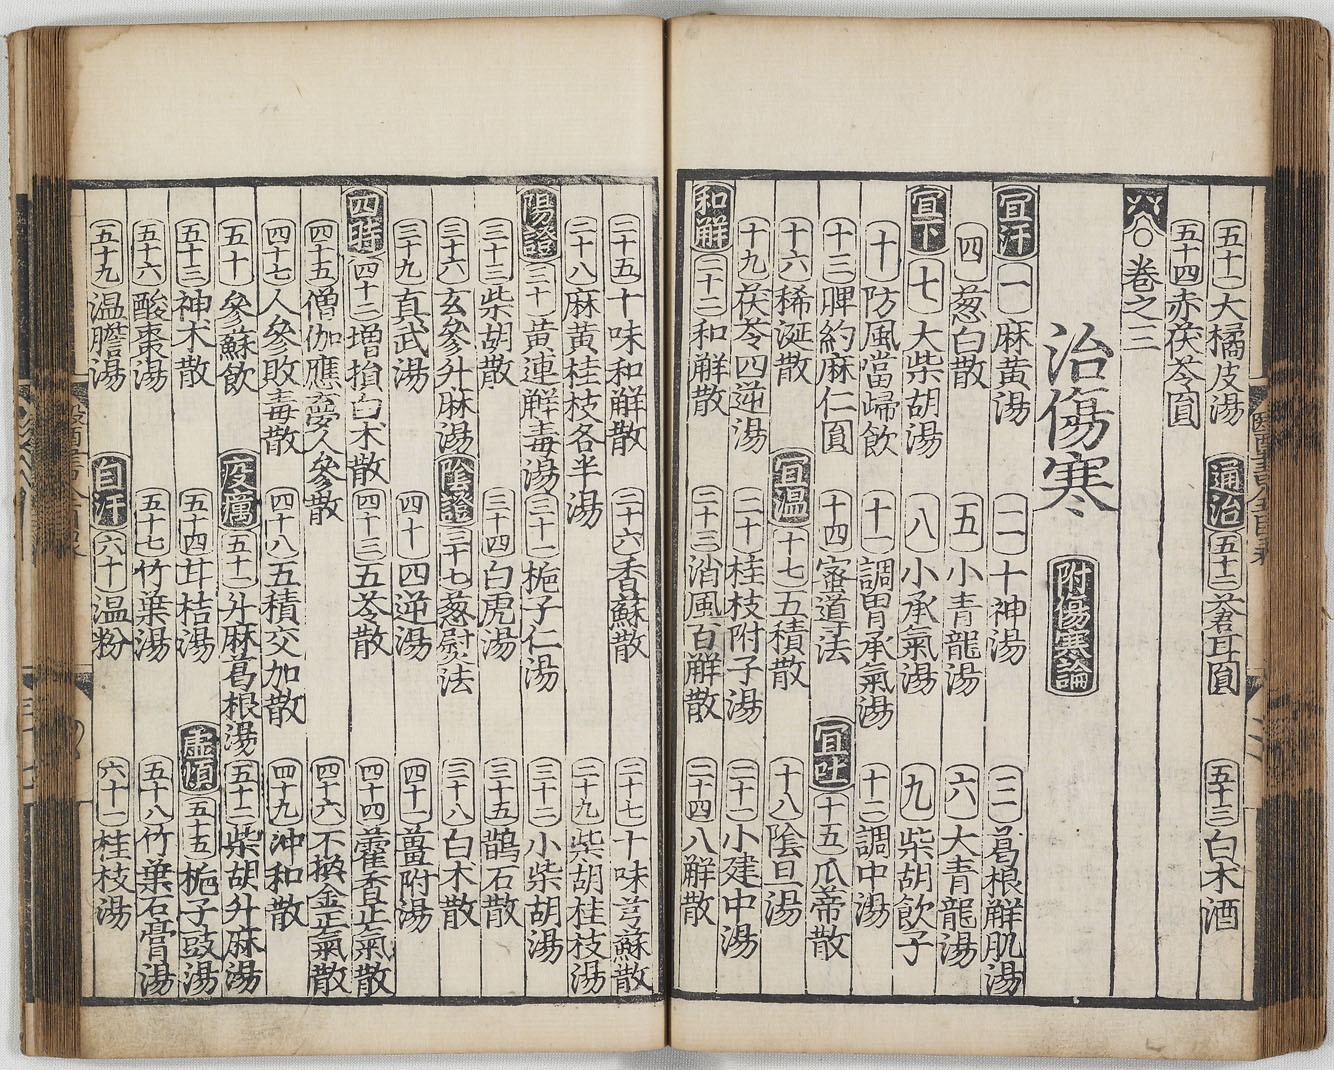 五十一 大橘皮湯 通治 五十二 茖耳圓 五十三 白木酒
五十四 赤茯苓圓
○卷之三
治傷寒 附傷寒論
宜汗 一 麻黄湯 二 十神湯 三 葛根解肌湯
四 葱白散 五 小青龍湯 六 大青龍湯
宜下 七 大柴胡湯 八 小承氣湯 九 柴胡飲子
十 防風當歸飲 十一 調胃承氣湯 十二 調中湯
十三 脾約麻仁圓 十四 蜜道法 宜吐 十五 瓜蒂散
十六 稀涎散 宜温 十七 五積散 十八 陰旦湯
十九 茯苓四逆湯 二十 桂枝附子湯 二十一 小建中湯
和解 二十二 和解散 二十三 消風百解散 二十四 八解散
二十五 十味和解散 二十六 香蘇散 二十七 十味芎蘇散
二十八 麻黄桂枝各半湯 二十九 柴胡桂枝湯
陽證 三十 黄連解毒湯 三十一 梔子仁湯 三十二 小柴胡湯
三十三 柴胡散 三十四 白虎湯 三十五 鵲石散
三十六 玄參升麻湯 陰證 三十七 葱熨法 三十八 白木散
三十九 真武湯 四十 四逆湯 四十一 薑附湯
四時 四十二 増損白术散 四十三 五苓散 四十四 藿香正氣散
四十五 僧伽應夢人參散 四十六 不換金正氣散
四十七 人參敗毒散 四十八 五積交加散 四十九 冲和散
五十 參蘇飲 疫癘 五十一 升麻葛根湯 五十二 柴胡升麻湯
五十三 神术散 五十四 甘桔湯 虚煩 五十五 梔子豉湯
五十六 酸棗湯 五十七 竹葉湯 五十八 竹葉石膏湯
五十九 温膽湯 自汗 六十 温粉 六十一 桂枝湯